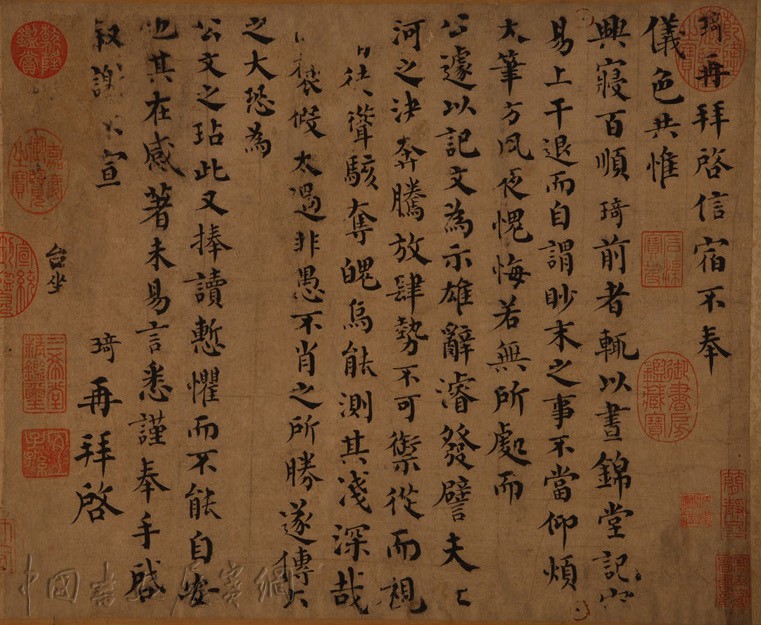 琦再拜啓信宿不奉
儀色共惟
興寢百順琦前者輒以晝錦堂記
易上干退而自謂眇末之事不當仰煩
大筆方夙夜愧悔若無所處而
公遽以記文為示雄辭濬發譬夫
河之決奔騰放肆勢不可禦從而視
徒聳駭奪魄烏能測其淺深哉
褒假太過非愚不肖之所勝遂傳
之大恐為
公文之玷此又捧讀慙懼而不能自安
也其在感著未易言悉謹奉手啓
敘謝不宣
琦再拜啓
台坐
乾隆鑑賞
石渠寶笈
御書房鑑藏寶
三希堂精鑑璽
宜子孫
中國書法展賽網